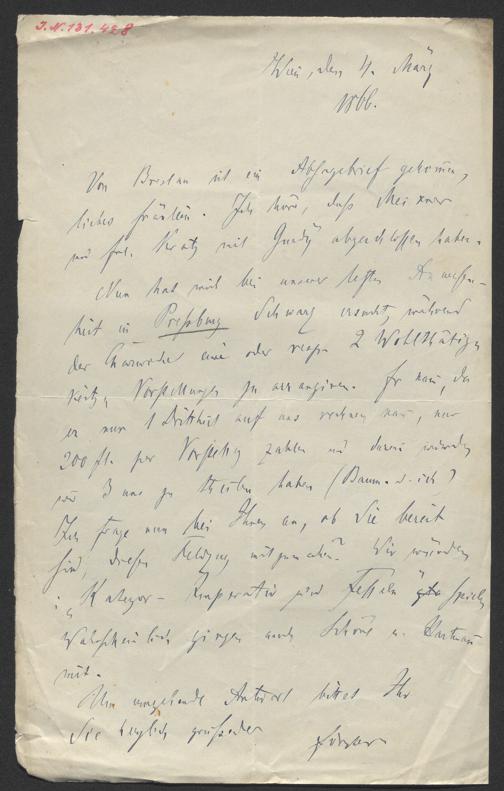 J.N. 131.428
Wien, den 4. März
1866.
Von Breslau ist ein Absagebrief gekommen,
liebes Fräulein. Ich höre, daß Meixner
und Frl. Kratz mit abgeschlossen haben.
Nun hat mich bei unserer letzten Anwesen-
heit in Preßburg Schwarz ersucht, während
der Charwoche eine oder 2 Wohlthätig
keits Vorstellungen zu arrangiren. Er kann, da
er nur 1 Drittheil auf uns rechnen kann, nur
200 fl. per Vorstellg zahlen und darin würden
wir 3 uns zu theilen haben (Baum. u. ich)
Ich frage nun bei Ihnen an, ob Sie bereit
sind, diesen Feldzug mitzumachen? Wir würden
"Kategor- Imperativ und Fesseln" spielen
Wahrscheinlich gingen auch Schöne u. Hartmann
mit.
Um umgehende Antwort bittet Ihr
Sie herzlich grüßender
Förster